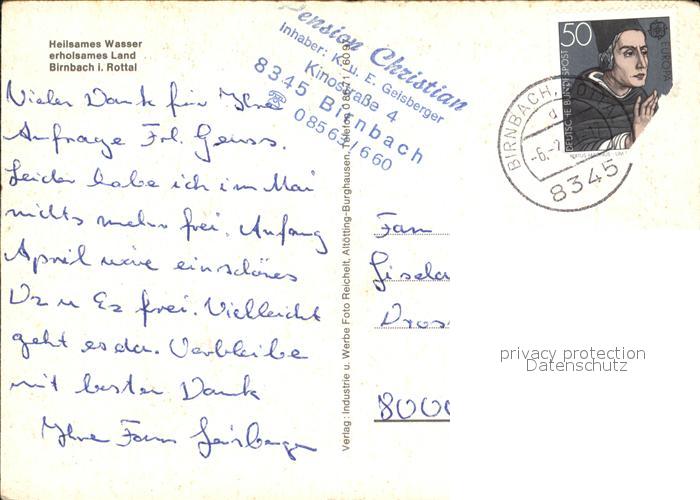 Heilsames Wasser
erholsames Land
Birnbach i. Rottal
Pension Christian
Inhaber: K. u. E. Geisberger
Kinostraße 4
8345 Birnbach
☎ 08563/660
Vielen Dank für Ihre
Anfrage Frl. Geuss.
Leider habe ich im Mai
nichts mehr frei. Anfang
April wäre ein schönes
Dz u Ez frei. Vielleicht
geht es da. Verbleibe
mit besten Dank
Ihre Fam Geisberger
Verlag: Industrie u. Werbe Foto Reichelt, Altötting-Burghausen, Telefon 08671/6097
50
DEUTSCHE BUNDESPOST
EUROPA
BIRNBACH,
8345
Fam
Gisela
Dros
8000
privacy protection
Datenschutz